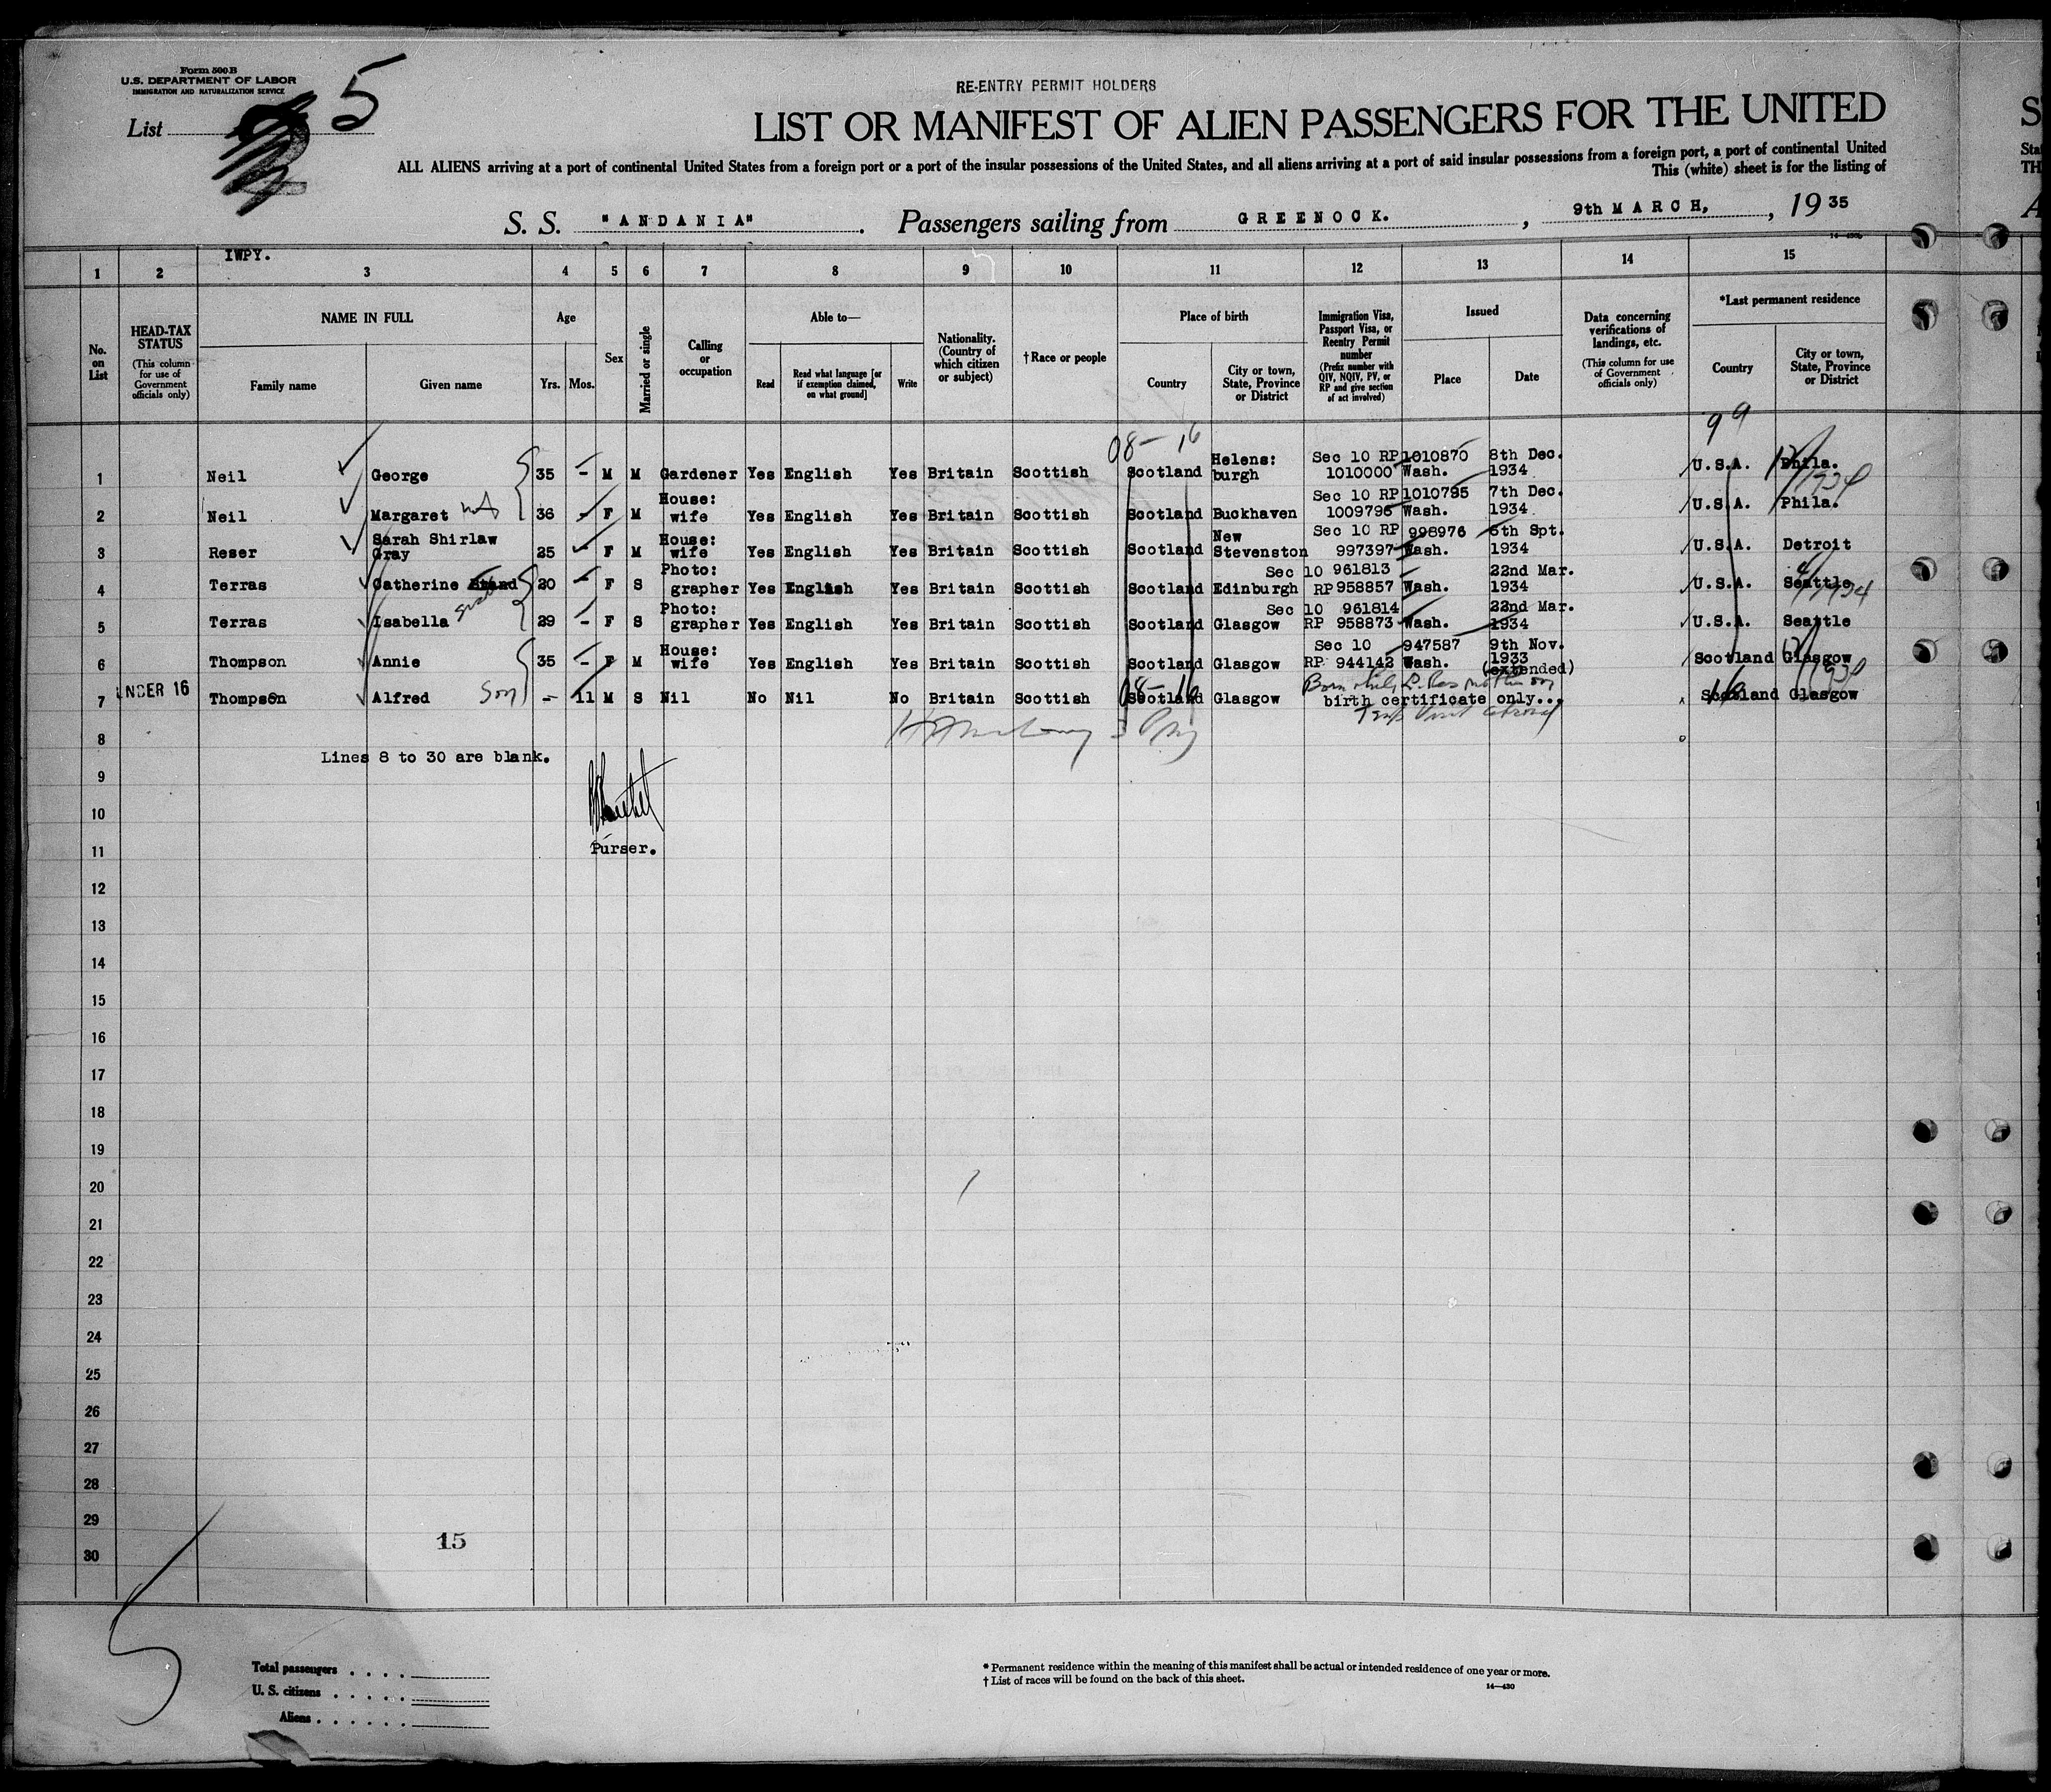 Form 500 B
U.S. DEPARTMENT OF LABOR
IMMIGRATION AND NATURALIZATION SERVICE
List 5
RE-ENTRY PERMIT HOLDERS
LIST OR MANIFEST OF ALIEN PASSENGERS FOR THE UNITED
ALL ALIENS arriving at a port of continental United States from a foreign port or a port of the insular possessions of the United States, and all aliens arriving at a port of said insular possessions from a foreign port, a port of continental United
This (white) sheet is for the listing of
S. S. "ANDANIA". Passengers sailing from GREENOCK. , 9th MARCH, , 19 35
IWPY.
1 2 3 4 5 6 7 8 9 10 11 12 13 14 15
No. on List
HEAD-TAX STATUS (This column for use of Government officials only)
NAME IN FULL Family name Given name
Age Yrs. Mos.
Sex
Married or single
Calling or occupation
Able to— Read Read what language [or if exemption claimed, on what ground] Write
Nationality. (Country of which citizen or subject)
†Race or people
Place of birth Country City or town, State, Province or District
Immigration Visa, Passport Visa, or Reentry Permit number (Prefix number with QIV, NQIV, PV, or RP and give section of act involved)
Issued Place Date
Data concerning verifications of landings, etc. (This column for use of Government officials only)
*Last permanent residence Country City or town, State, Province or District
99
08- 16
1 Neil George 35 - M M Gardener Yes English Yes Britain Scottish Scotland Helens: burgh Sec 10 RP 1010870 1010000 Wash. 8th Dec. 1934 U.S.A. Phila.
2 Neil Margaret 36 - F M House: wife Yes English Yes Britain Scottish Scotland Buckhaven Sec 10 RP 1010795 1009796 Wash. 7th Dec. 1934 U.S.A. Phila.
3 Reser Sarah Shirlaw Gray 25 - F M House: wife Yes English Yes Britain Scottish Scotland New Stevenston Sec 10 RP 998976 997397 Wash. Spt. 1934 U.S.A. Detroit
4 Terras Catherine 30 - F S Photo: grapher Yes English Yes Britain Scottish Scotland Edinburgh Sec 10 961813 RP 958857 Wash. 22nd Mar. 1934 U.S.A. Seattle
5 Terras Isabella 29 - F S Photo: grapher Yes English Yes Britain Scottish Scotland Glasgow Sec 10 961814 RP 958873 Wash. 22nd Mar. 1934 U.S.A. Seattle
6 Thompson Annie 35 - F M House: wife Yes English Yes Britain Scottish Scotland Glasgow Sec 10 947587 RP 944142 Wash. 9th Nov. 1933 (extended) Scotland Glasgow
UNDER 16
7 Thompson Alfred Son - 11 M S Nil No Nil No Britain Scottish Scotland Glasgow birth certificate only... Scotland Glasgow
08- 16
8
Lines 8 to 30 are blank.
9
10
11
Purser.
12
13
14
15
16
17
18
19
20
21
22
23
24
25
26
27
28
29
15
30
5
Total passengers . . . .
U. S. citizens . . . . .
Aliens . . . . . .
* Permanent residence within the meaning of this manifest shall be actual or intended residence of one year or more.
† List of races will be found on the back of this sheet.
14—430